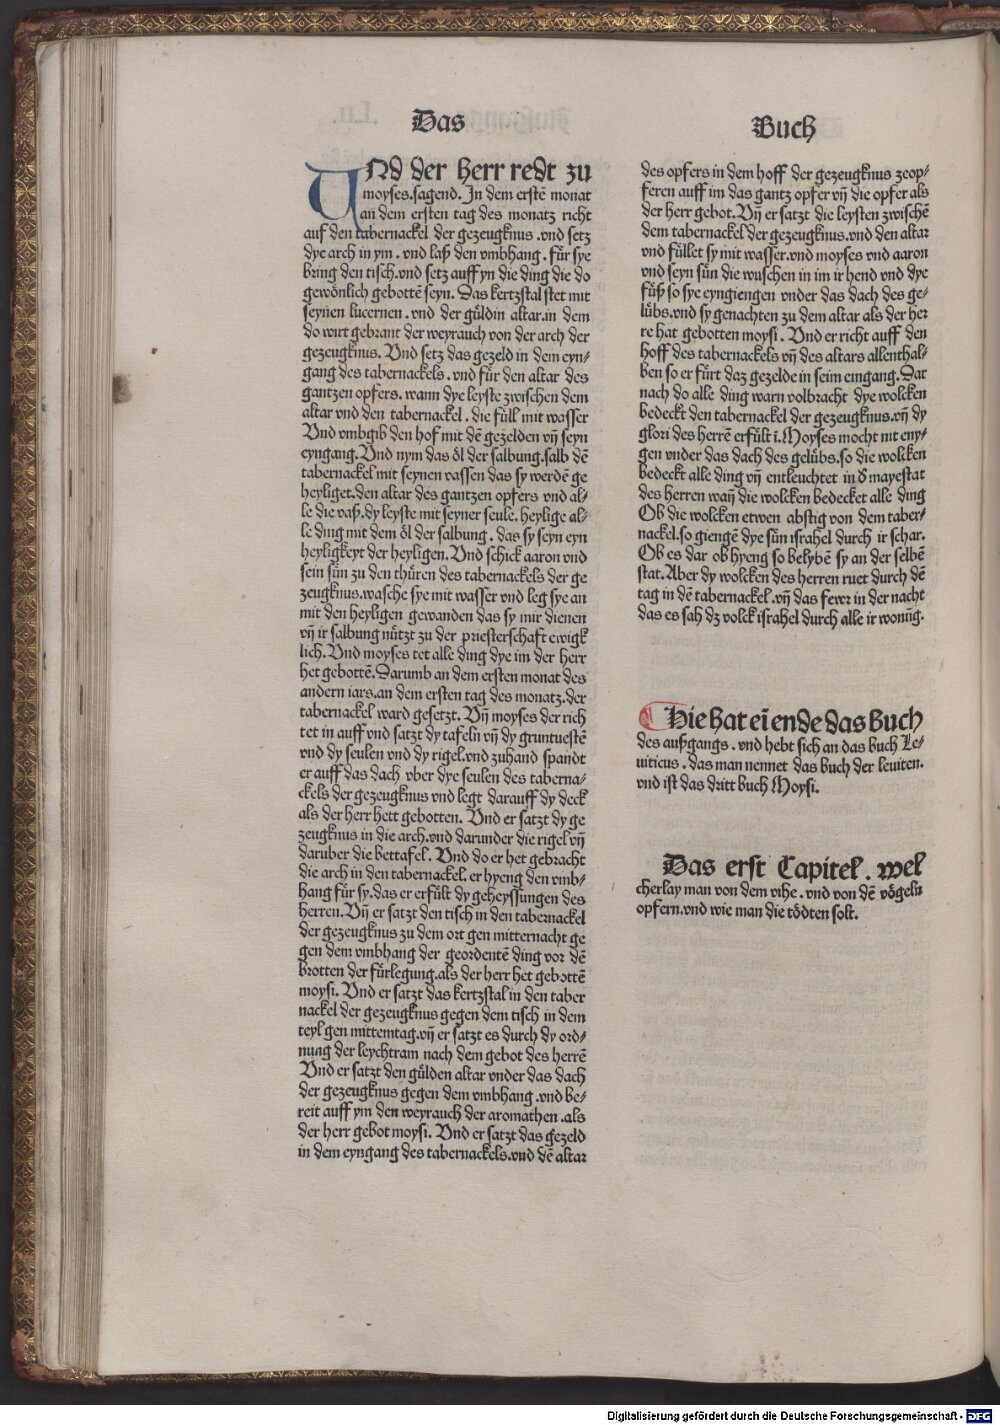 Das
Buch
UNd der herr redt zu
moyses.sagend. In dem erstē monat
an dem ersten tag des monatz richt
auf den tabernackel der gezeugknus .vnd setz
dye arch in ym . vnd laß den vmbhang . für sye
bring den tisch.vnd setz auff yn die ding die do
gewönlich gebottē seyn. Das kertzstal stet mit
seynen lucernen . vnd der güldin altar.in dem
do wirt gebrant der weyrauch von der arch der
gezeugknus. Vnd setz das gezeld in dem eyn⸗
gang des tabernackels . vnd für den altar des
gantzen opfers. wann dye leyste zwischen dem
altar vnd den tabernackel . die füll mit wasser
Vnd vmbgib den hof mit dē gezelden vn̄ seyn
eyngang. Vnd nym das öl der salbung.salb dē
tabernackel mit seynen vassen das sy werdē ge
heyliget.den altar des gantzen opfers vnd al⸗
le die vaß.dy leyste mit seyner seule. heylige al⸗
le ding mit dem öl der salbung . das sy seyn eyn
heyligkeyt der heyligen. Vnd schick aaron vnd
sein sün zu den thüren des tabernackels der ge
zeugknus.wasche sye mit wasser vnd leg sye an
mit den heyligen gewanden das sy mir dienen
vn̄ ir salbung nützt zu der priesterschaft ewigk
lich. Vnd moyses tet alle ding dye im der herr
het gebottē. Darumb an dem ersten monat des
andern iars.an dem ersten tag des monatz.der
tabernackel ward gesetzt. Vn̄ moyses der rich
tet in auff vnd satzt dy tafeln vn̄ dy gruntuestē
vnd dy seulen vnd dy rigel.vnd zuhand spandt
er auff das dach vber dye seulen des taberna⸗
ckels der gezeugknus vnd legt darauff dy deck
als der herr hett gebotten. Vnd er satzt dy ge
zeugknus in die arch.vnd darunder die rigel vn̄
daruber die bettafel. Vnd do er het gebracht
die arch in den tabernackel. er hyeng den vmb⸗
hang für sy.das er erfült dy geheyssungen des
herren. Vn̄ er satzt den tisch in den tabernackel
der gezeugknus zu dem ort gen mitternacht ge
gen dem vmbhang der geordentē ding vor dē
brotten der fürlegung.als der herr het gebottē
moysi. Vnd er satzt das kertzstal in den taber
nackel der gezeugknus gegen dem tisch in dem
teyl gen mittemtag.vn̄ er satzt es durch dy ord⸗
nung der leychtram nach dem gebot des herrē
Vnd er satzt den gülden altar vnder das dach
der gezeugknus gegen dem vmbhang .vnd be⸗
reit auff ym den weyrauch der aromathen .als
der herr gebot moysi. Vnd er satzt das gezeld
in dem eyngang des tabernackels.vnd dē altar
des opfers in dem hoff der gezeugknus zeop⸗
feren auff im das gantz opfer vn̄ die opfer als
der herr gebot. Vn̄ er satzt die leysten zwischē
dem tabernackel der gezeugknus.vnd den altar
vnd füllet sy mit wasser.vnd moyses vnd aaron
vnd seyn sün die wuschen in im ir hend vnd dye
füß so sye eyngiengen vnder das dach des ge⸗
lübs.vnd sy genachten zu dem altar als der her
re hat gebotten moysi . Vnd er richt auff den
hoff des tabernackels vn̄ des altars allenthal⸗
ben so er fürt daz gezelde in seim eingang. Dar
nach do alle ding warn volbracht dye wolcken
bedeckt den tabernackel der gezeugknus.vn̄ dy
glori des herrē erfült ī. Moyses mocht nit eny⸗
gen vnder das dach des gelübs.so die wolcken
bedeckt alle ding vn̄ entleuchtet in d᷑ mayestat
des herren wan̄ die wolcken bedecket alle ding
Ob die wolcken etwen abstig von dem taber⸗
nackel.so giengē dye sün israhel durch ir schar.
Ob es dar ob hyeng so belybē sy an der selbē
stat. Aber dy wolcken des herren ruet durch dē
tag in dē tabernackel .vn̄ das fewr in der nacht
das es sah dz volck israhel durch alle ir wonūg.
Hie hat eī ende das Buch
des außgangs . vnd hebt sich an das buch Le⸗
uiticus . das man nennet das buch der leuiten.
vnd ist das dritt buch Moysi.
Das erst Capitel . wel
cherlay man von dem vihe . vnd von dē vögeln
opfern.vnd wie man die tödten solt.
Digitalisierung gefördert durch die Deutsche Forschungsgemeinschaft - DFG